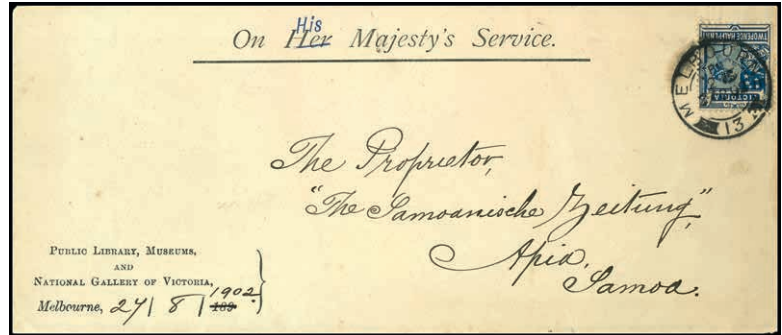 On Her His Majesty's Service.
TWOPENCE HALFPENNY
VICTORIA
MELBOURNE
13
The Proprietor,
"The Samoanische Zeitung,"
Apia,
Samoa.
PUBLIC LIBRARY, MUSEUMS,
AND
NATIONAL GALLERY OF VICTORIA,
Melbourne, 27 | 8 | 189 1902